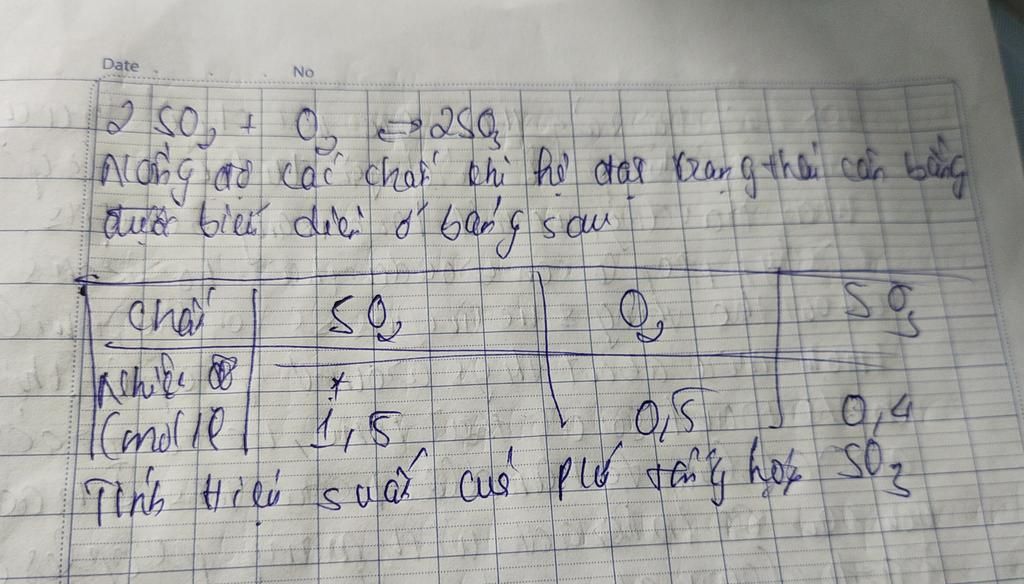 Date No
2 SO2 + O2 ⇌ 2SO3
Nồng độ các chất khi hệ đạt trạng thái cân bằng
được biểu diễn ở bảng sau
Chất SO2 O2 SO3
(mol/l) 1,5 0,5 0,4
Tính hiệu suất của pứ tổng hợp SO3